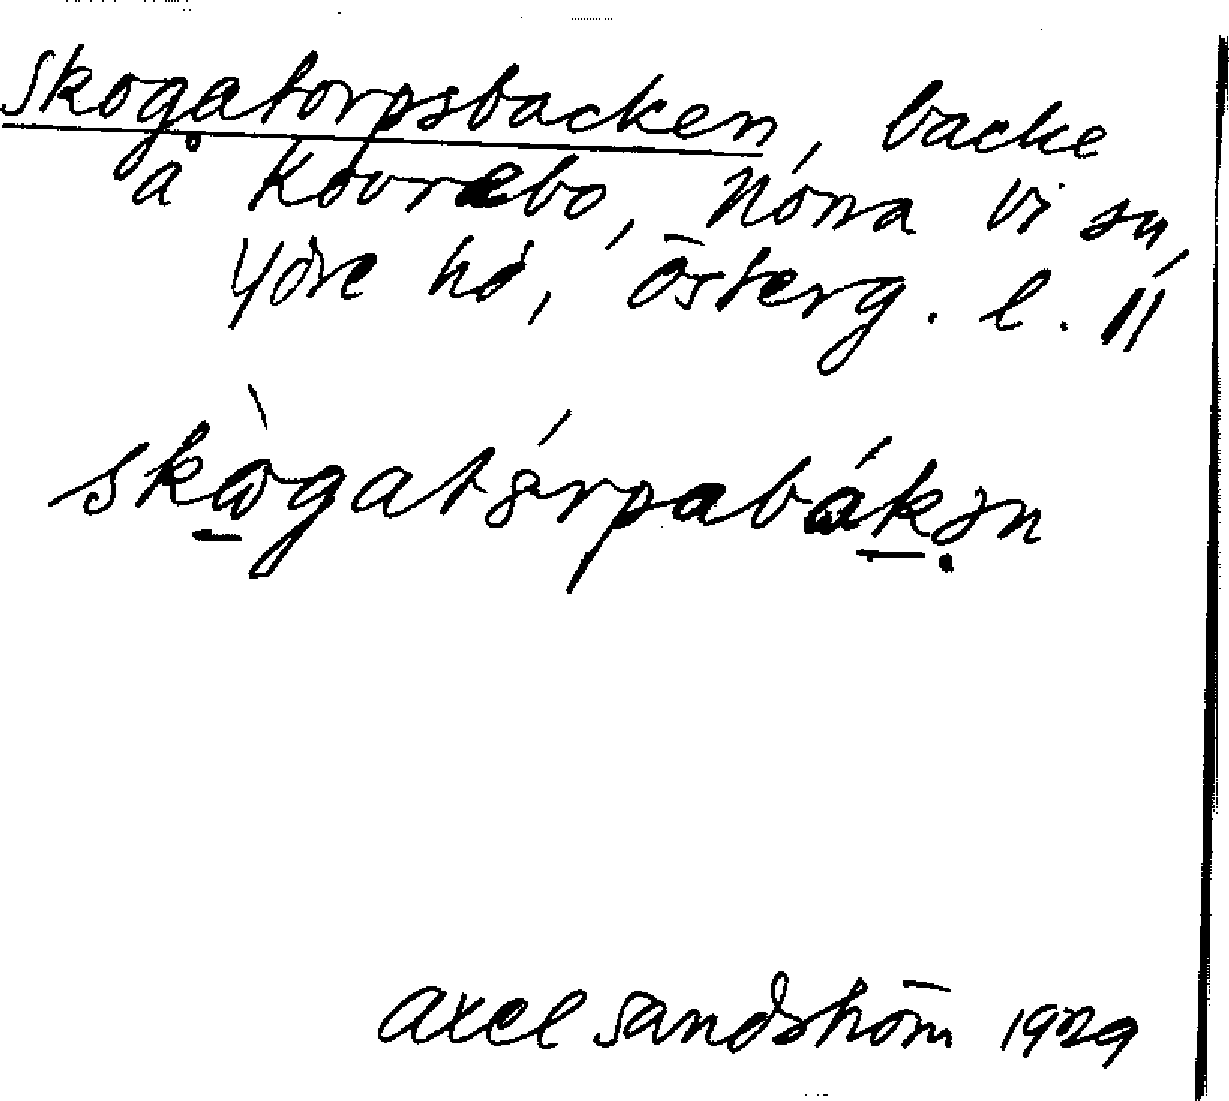 Skogatorpsbacken, backe
å Kovrebo, Norra Vi sn,
Ydre hd, Österg. l.
skògatórpabákən
Axel Sandström 1929